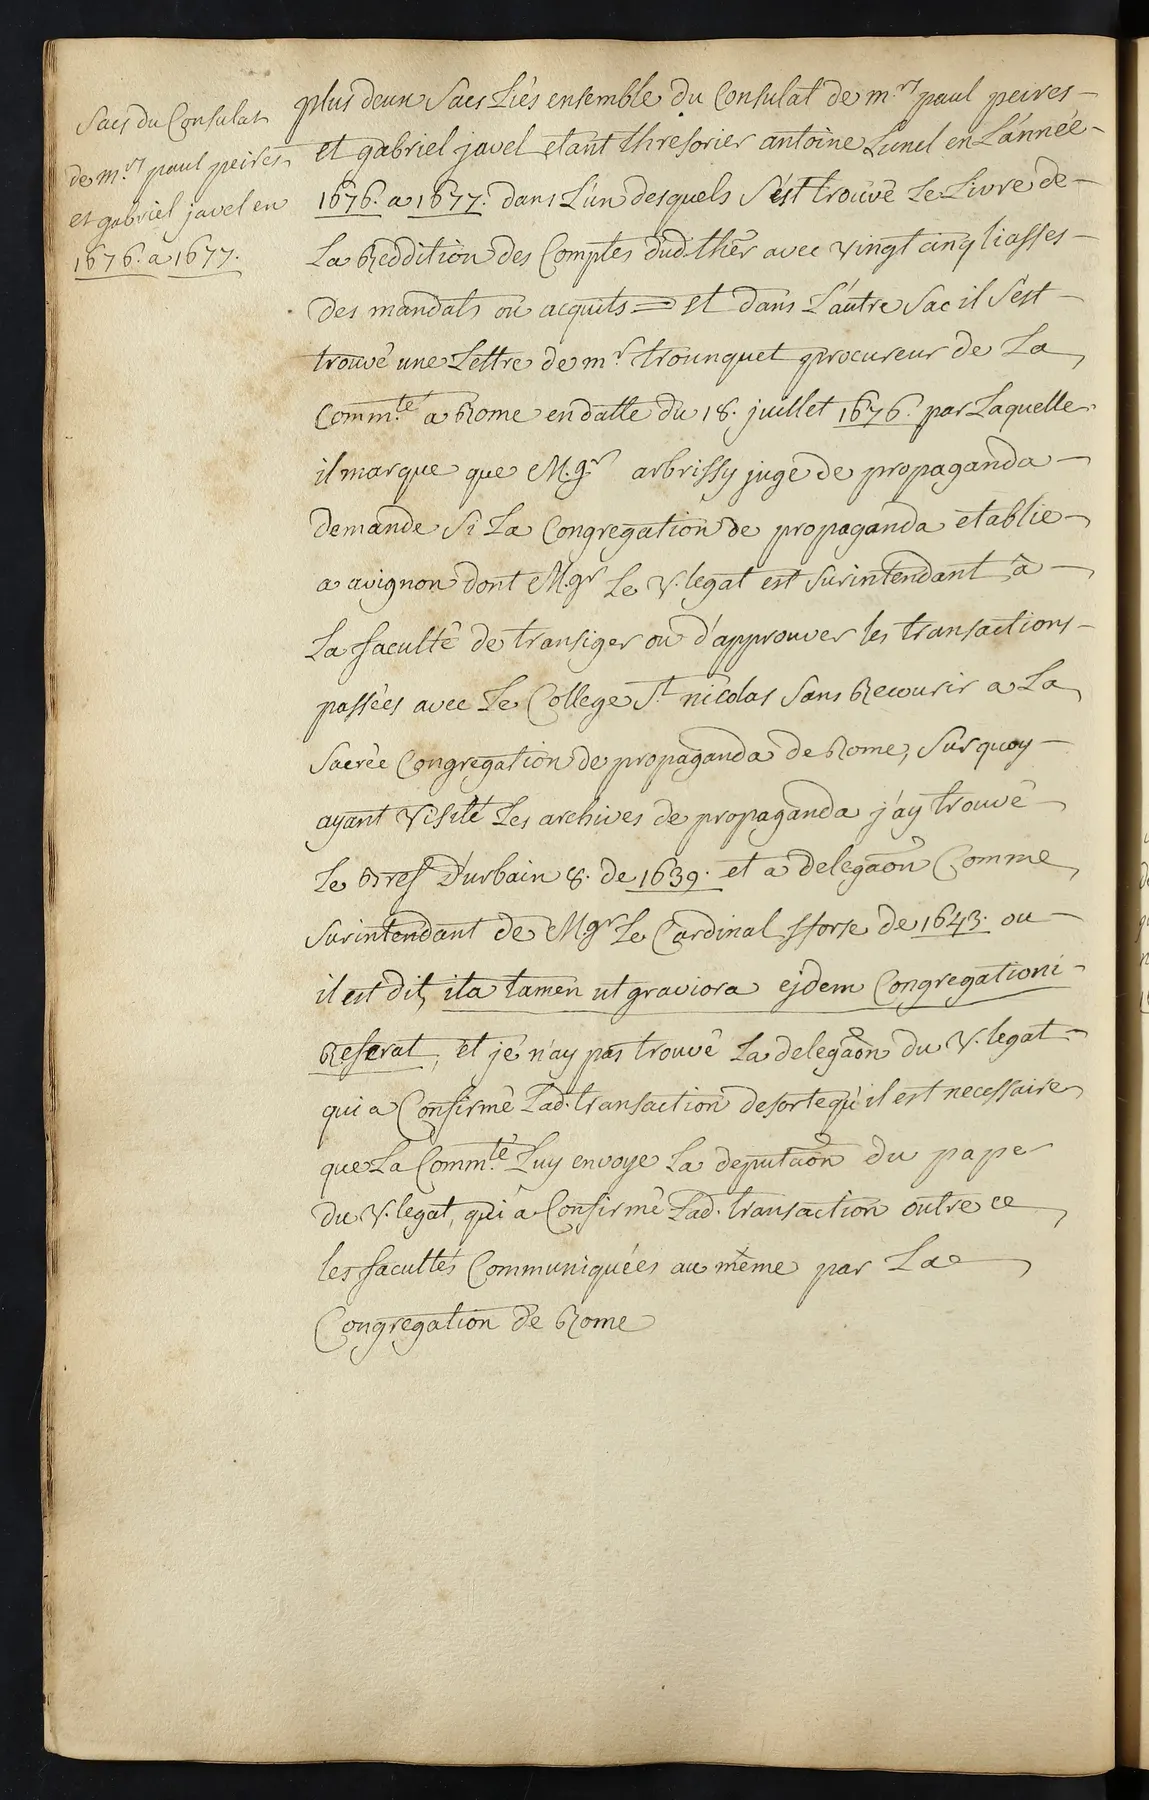 Sacs du Consulat
de m.rs paul peires
et gabriel javel en
1676. a 1677.
plus deux Sacs Liés ensemble du Consulat de m.rs paul peires
et gabriel javel etant thresorier antoine Lunel en L'année
1676. a 1677. dans L'un desquels s'ést trouvé Le Livre de
La Reddition des Comptes dud. ther avec vingt cinq liasses
des mandats ou acquits = et dans L'autre Sac il s'est
trouvé une Lettre de m.r trounquet procureur de La
Comm.té a Rome en datte du 18. juillet 1676. par Laquelle
il marque que M.gr arbrissy juge de propaganda
demande si La Congregation de propaganda etablie
a avignon dont M.gr Le V. legat est Surintendant à
La faculté de transiger ou d'approuver les transactions
passées avec Le College S.t nicolas sans Recourir a La
Sacrée Congregation de propaganda de Rome, sur quoy
ayant visité Les archives de propaganda j'ay trouvé
Le Bref D'urbain 8. de 1639. et a delegaon Comme
Surintendant de M.gr Le Cardinal sforse de 1643. ou
il est dit, ita tamen ut graviora ejdem Congregationi
Referat, et je n'ay pas trouvé La delegaon du V. legat
qui a Confirmé Lad. transaction de sorte qu'il est necessaire
que La Comm.té Luy envoye La deputaon du pape
du V. legat, qui a Confirmé Lad. transaction outre ce
les facultés Communiquées au même par La
Congregation de Rome